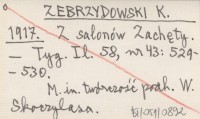 ZEBRZYDOWSKI K.
1917. Z salonów Zachęty.
— Tyg. Il. 58, nr 43: 529-
- 530.
M. in. twórczość prof. W.
Skoczylasa.